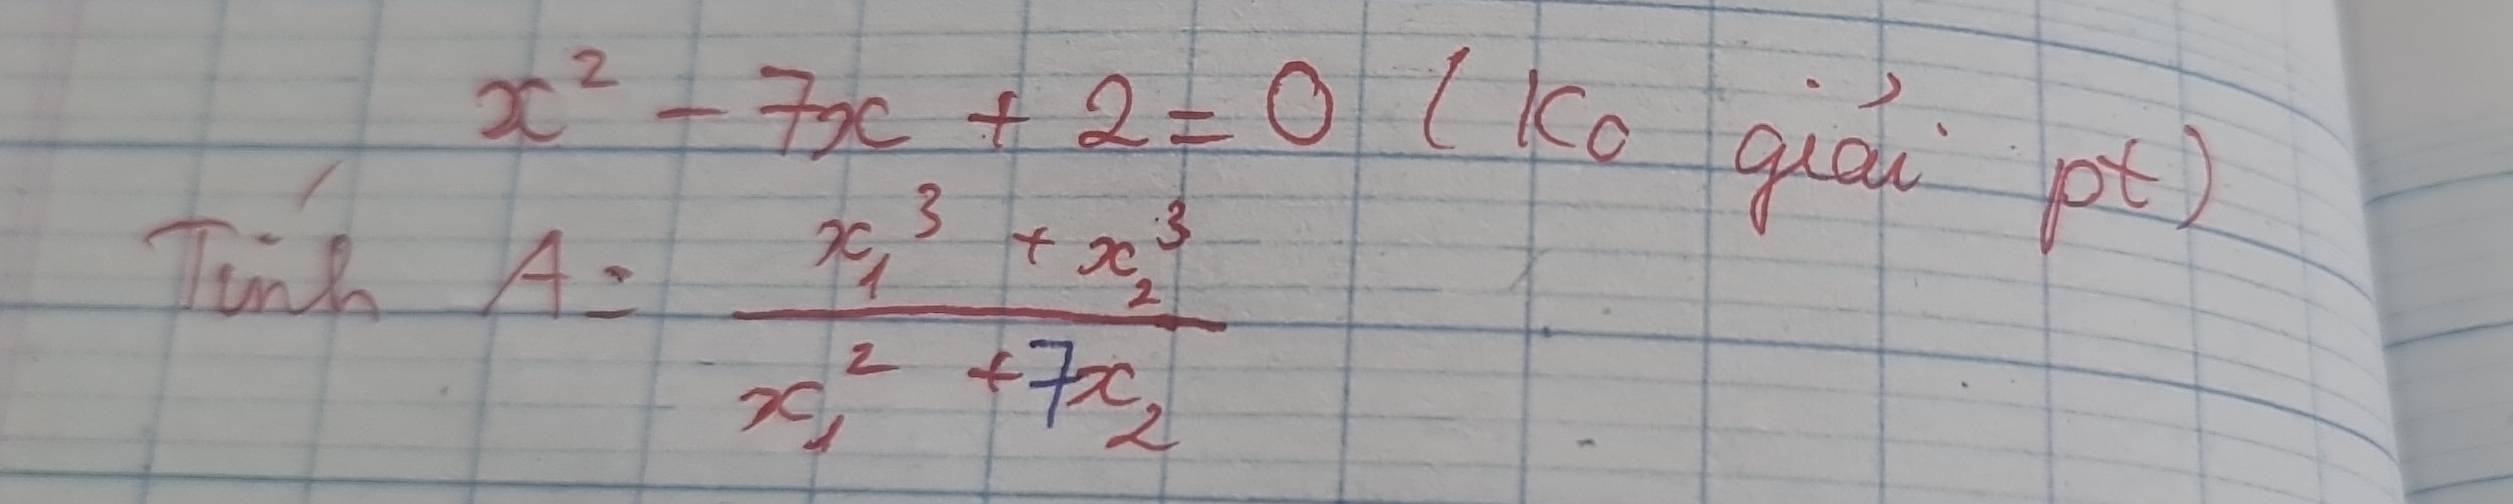 x² - 7x + 2 = 0 (Ko giải pt)
Tính A = \frac{x_1^3 + x_2^3}{x_1^2 + 7x_2}